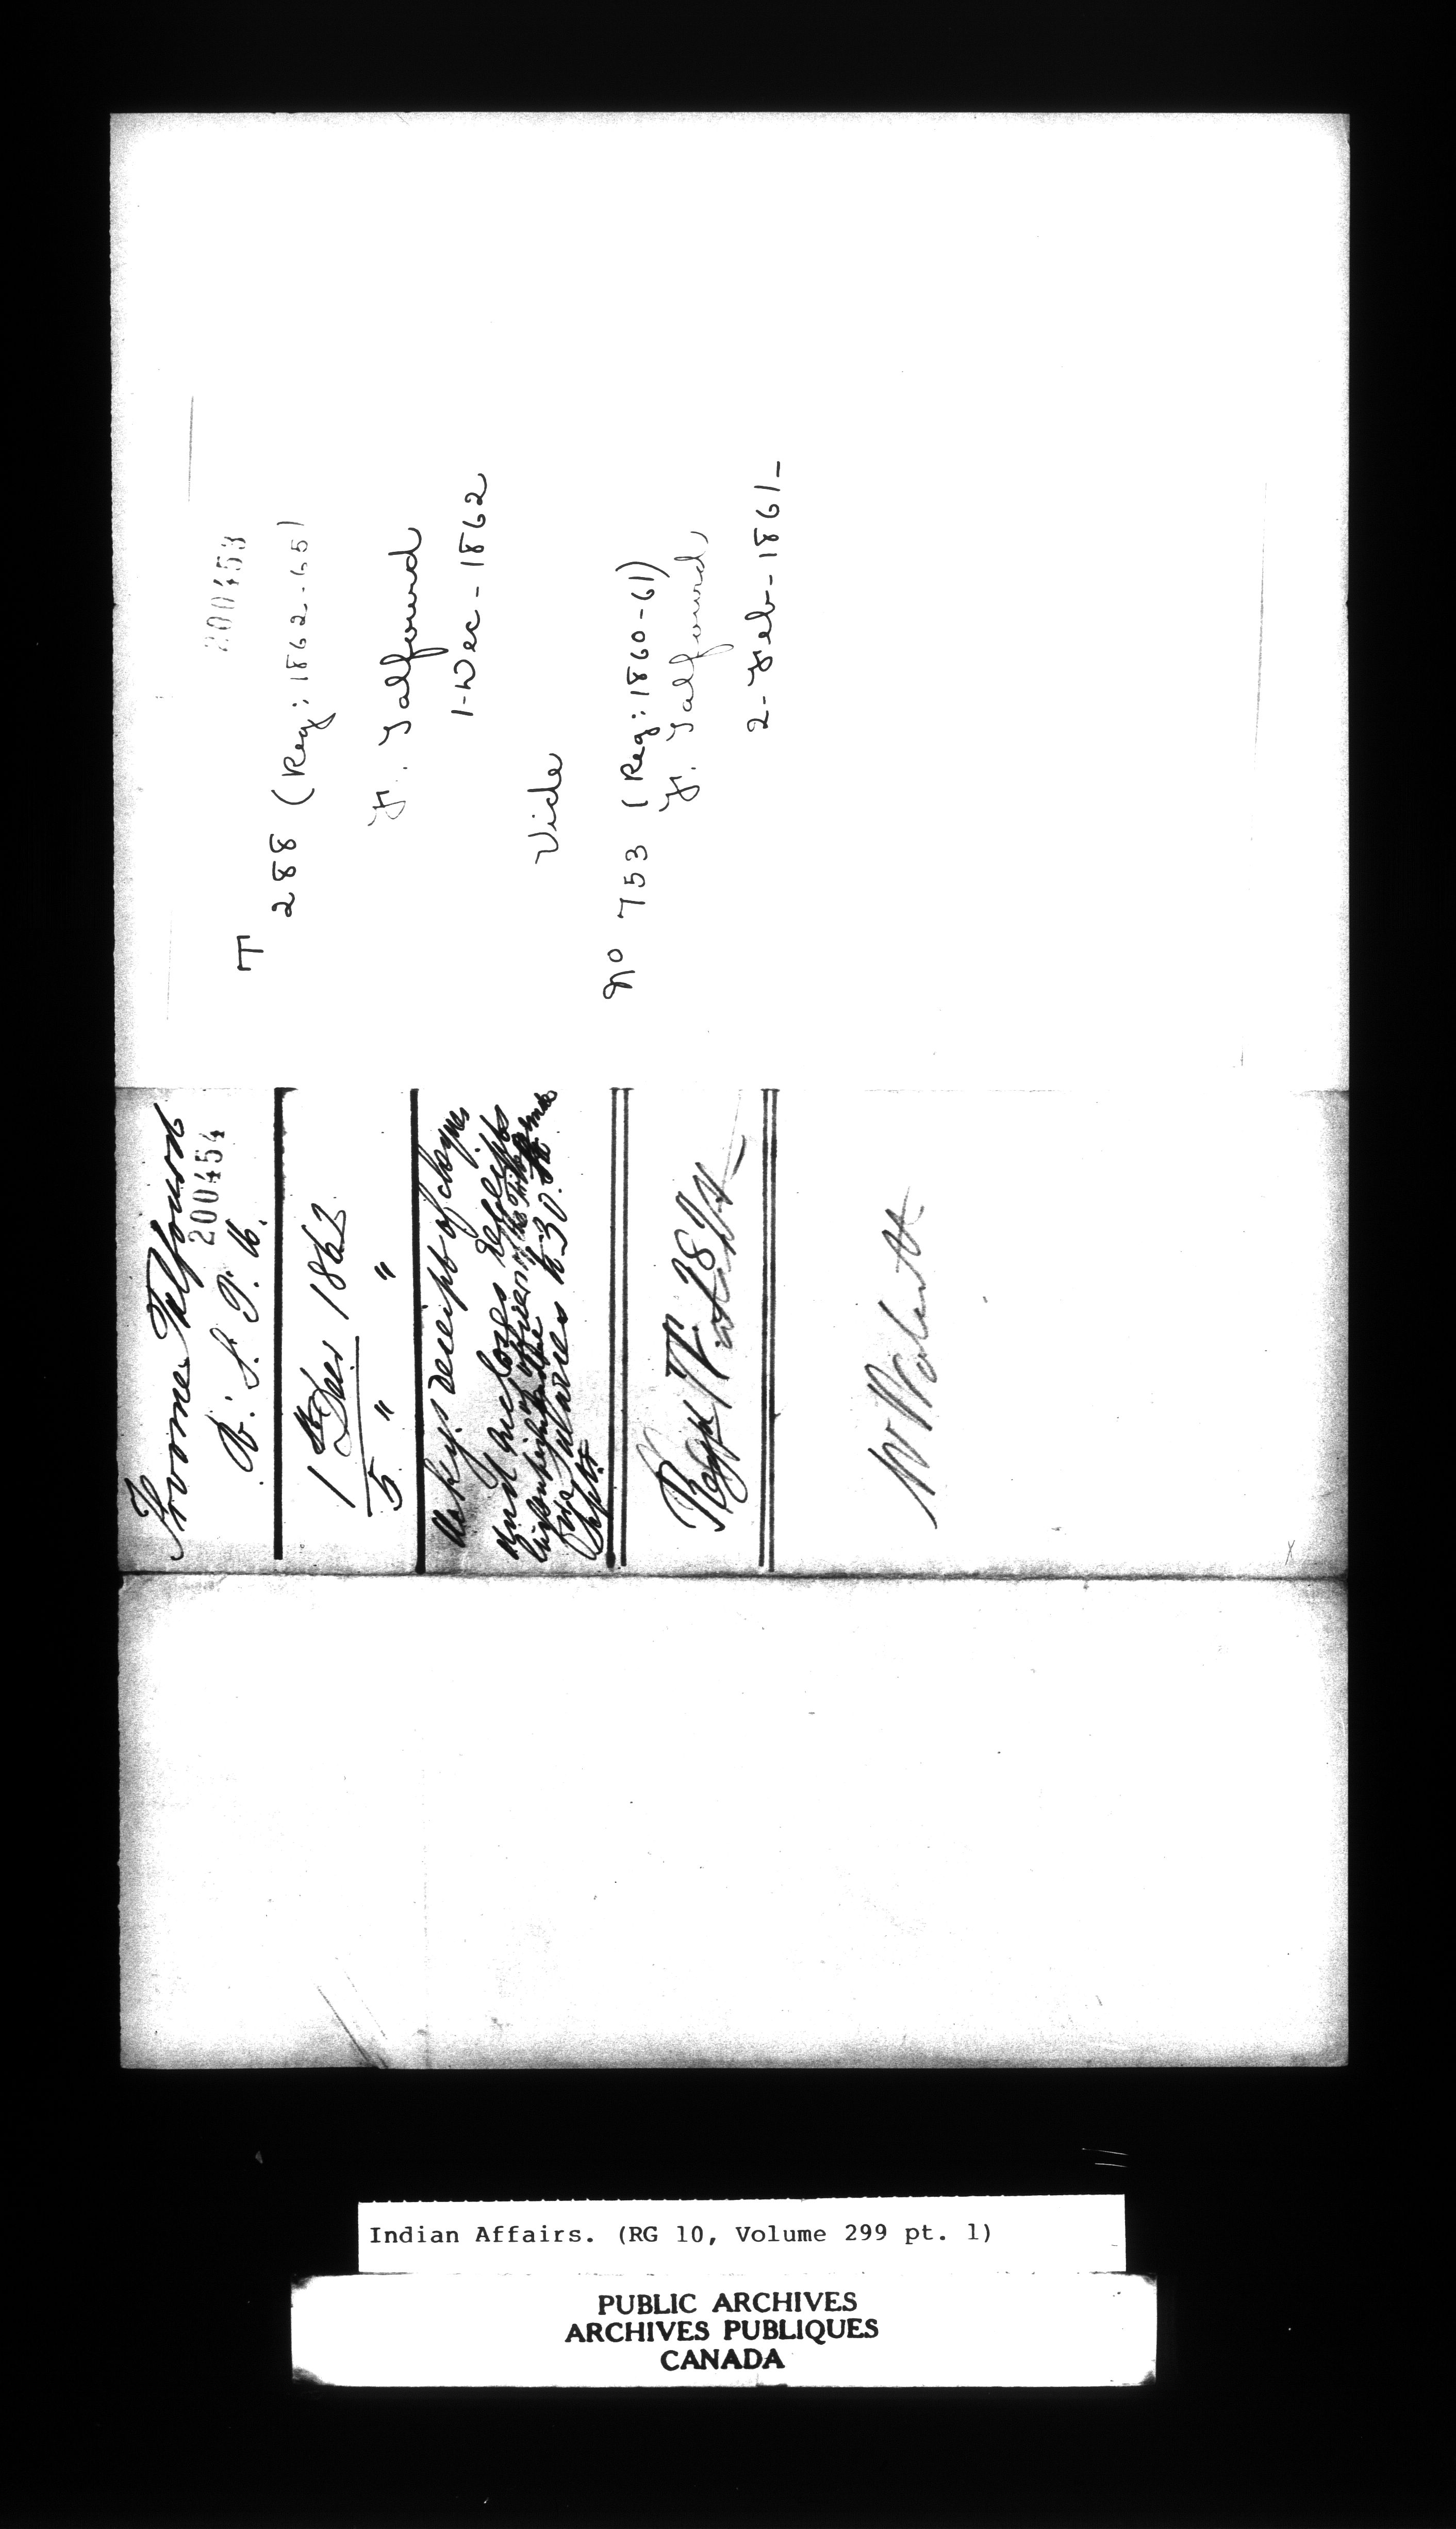 200453
T
288 (Reg: 1862-65)
F. Talfourd
1-Dec-1862
Vide
No 753 (Reg: 1860-61)
F. Talfourd
2-Feb-1861-
Froome Talfourd
200454
1st Decr 1862
5 " "
receipt of cheque
and encloses receipts
for salaries to 30
Sept
Indian Affairs. (RG 10, Volume 299 pt. 1)
PUBLIC ARCHIVES
ARCHIVES PUBLIQUES
CANADA